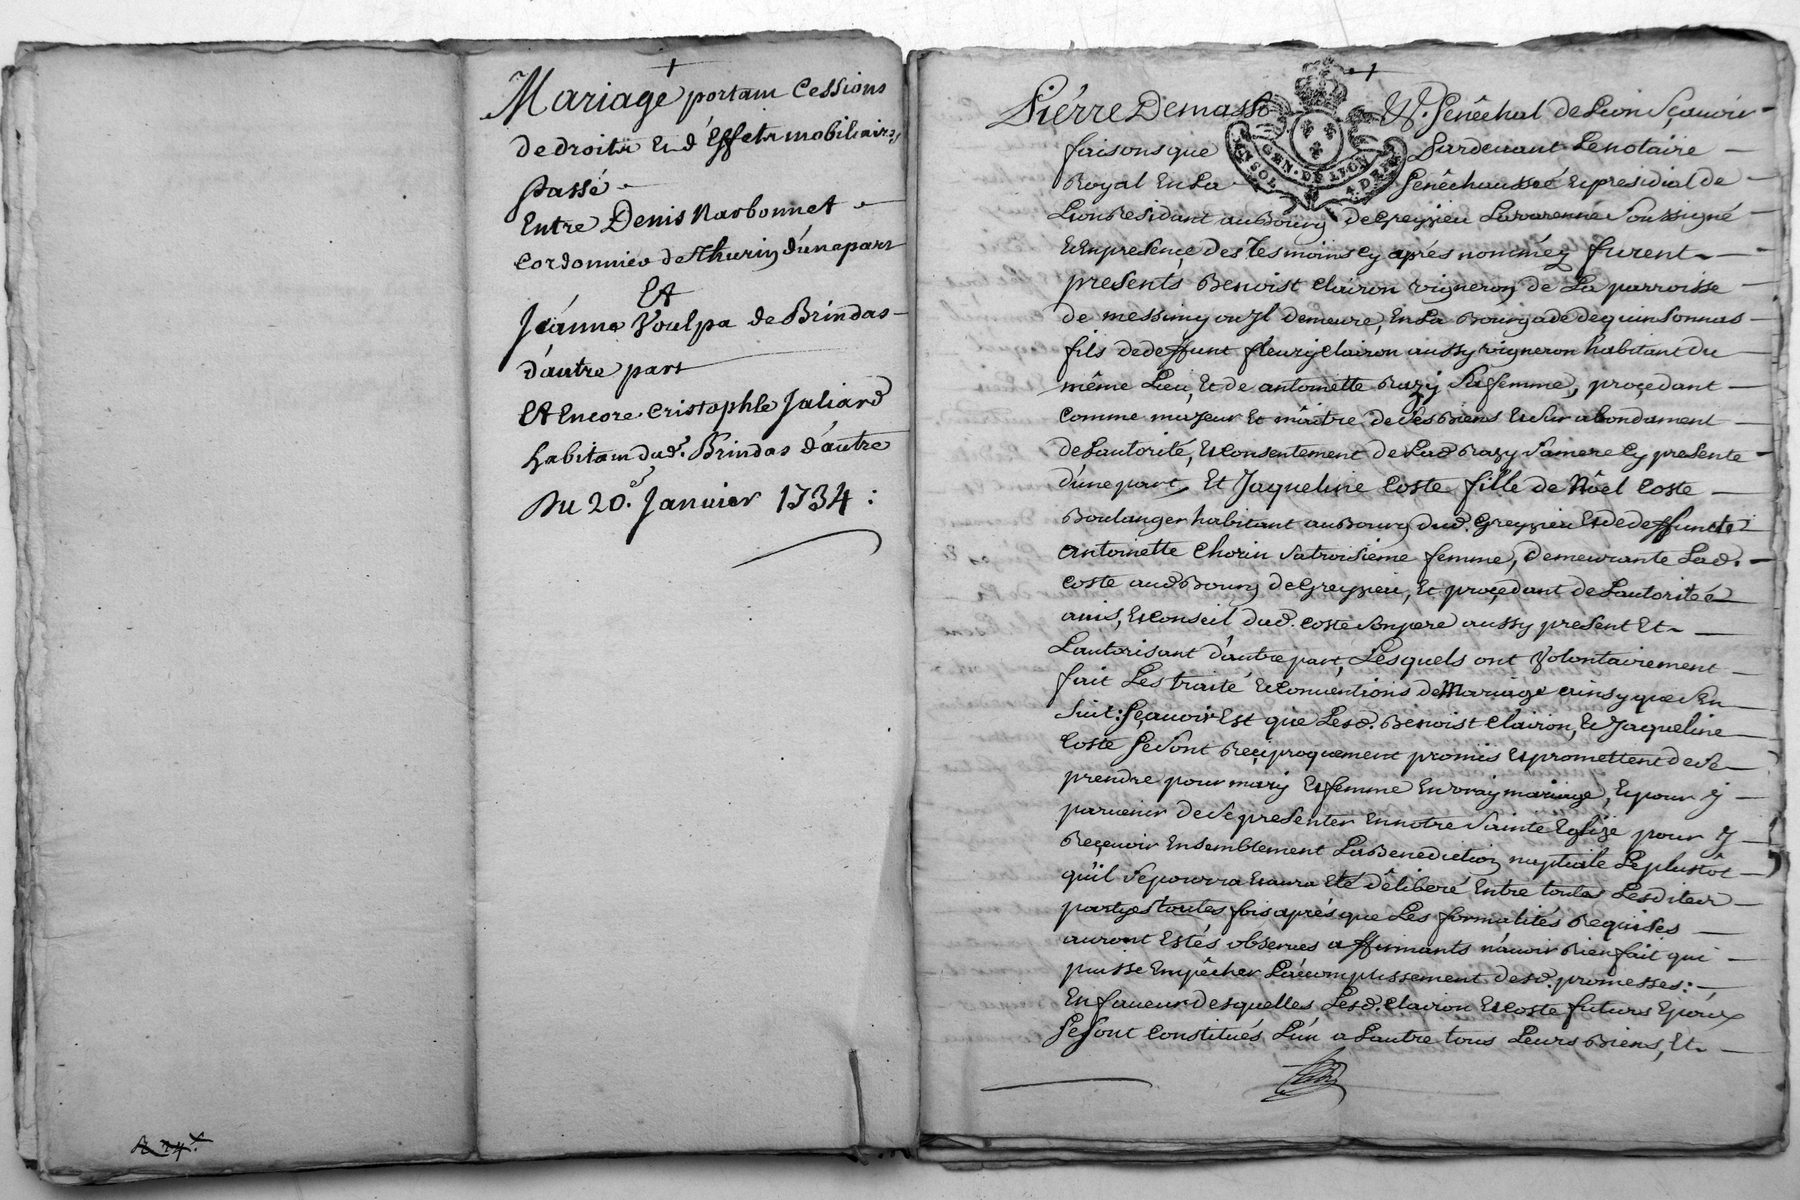 Mariage portant Cessions
de droits Et d'Effets mobiliaires
passé
Entre Denis Narbonnet
Cordonnier de Thurin d'une part
Et
Jeanne Voulpa de Brindas
d'autre part
Et Encore Cristophle Jaliard
habitant dud. Brindas d'autre
Du 20e. Janvier 1734 :
Pierre Demasso Sénêchal de Lion Sçauoir
faisons que Pardeuant Le notaire
Royal En La Sénêchaussée et presidial de
Lion Residant au Bourg de Greyzieu Lauarenne Soussigné
et En presence des Tesmoins Cy aprés nommés furent
presents Benoist Clairon vigneron de La parroisse
de messimy ou Jl demeure, En La Bourgade de quinsonnas
fils de deffunt fleury Clairon aussy vigneron habitant du
même Lieu, Et de antoinette Razy Sa femme, proçedant
Comme majeur Et mâitre de Ses Biens et Sur abondament
de Lautorité, et Consentement de Lad Razy Sa mere Cy presente
d'une part, Et Jaqueline Coste fille de Nôel Coste
Boulanger habitant au Bourg dud. Greyzieu et de deffuncte
antoinette Chorin Sa troisieme femme, demeurante Lad.
Coste aud Bourg de Greyzieu, et proçedant de Lautorité
auis, et Conseil dud. Coste Son pere aussy present Et
Lautorisant d'autre part, Lesquels ont volontairement
fait Les traité et Conuentions de Mariage ainsy que S'en
Suit: Sçauoir Est que Lesd. Benoist Clairon, et Jaqueline
Coste Se Sont Reçiproquement promis et promettent de Se
prendre pour mary et femme En vray mariage, et pour y
paruenir de Se presenter En notre Sainte Eglize pour y
Reçeuoir Ensemblement La Benediction nuptiale Le plustôt
qu'il Se pourra et aura Eté déliberé Entre toutes Lesdites
partyes toutes fois aprés que Les formalités Requises
auront Estés obserues affirmants n'auoir Rien fait qui
puisse Empêcher L'acomplissement desd. promesses:
En faueur desquelles Lesd. Clairon et Coste futurs Epoux
Se Sont Constitués L'un a Lautre tous Leurs Biens, Et
GEN. DE LYON